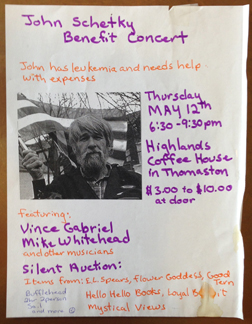 John Schetky
Benefit Concert
John has leukemia and needs help
with expenses
Thursday
MAY 12th
6:30 - 9:30pm
Highlands
Coffee House
in Thomaston
$3.00 to $10.00
at door
featuring:
Vince Gabriel
Mike Whitehead
and other musicians
Silent Auction:
Items from: E.L. Spears, flower Goddess, Good
Tern
Hello Hello Books, Loyal
Mystical Views
Bufflehead
Sail
and more